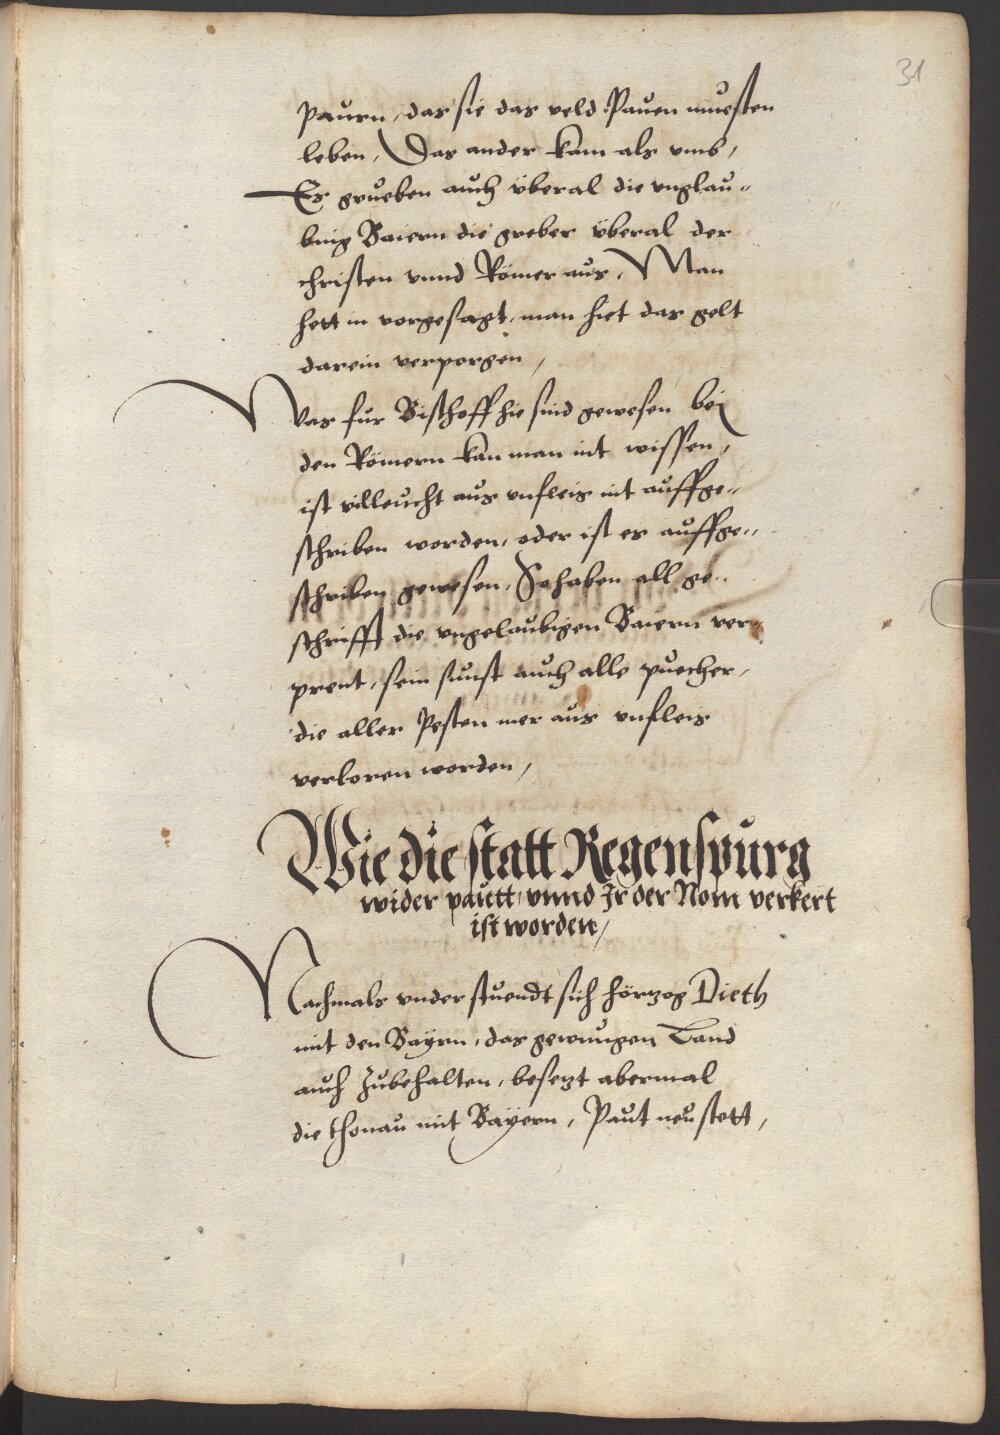 31
Paurn, das sie das veld Pauen muesten
leben, Das ander kam als vmb,
Es grueben auch überal die vnglau-
big Baiern die greber überal der
christen vnnd Römer aus, Man
hett in vorgesagt, man hiet das gelt
darein verporgen,
Was für Bischoff hie sind gewesen bei
den Römern kan man nit wissen,
ist villeucht aus vnfleis nit auffge-
schriben worden, oder ist es auffge-
schriben gewesen, So haben all ge-
schrifft die vngelaubigen Baiern ver-
prent, sein sunst auch alle puecher,
die aller Pesten mer aus vnfleis
verloren worden,
Wie die statt Regenspurg
wider pautt, vnnd Jr der Nom verkert
ist worden,
Nachmals vnderstuendt sich hörtzog Dieth
mit den Bayrn, das gewungen Land
auch zubehalten, besetzt abermal
die thonau mit Bayern, Paut neu stett,